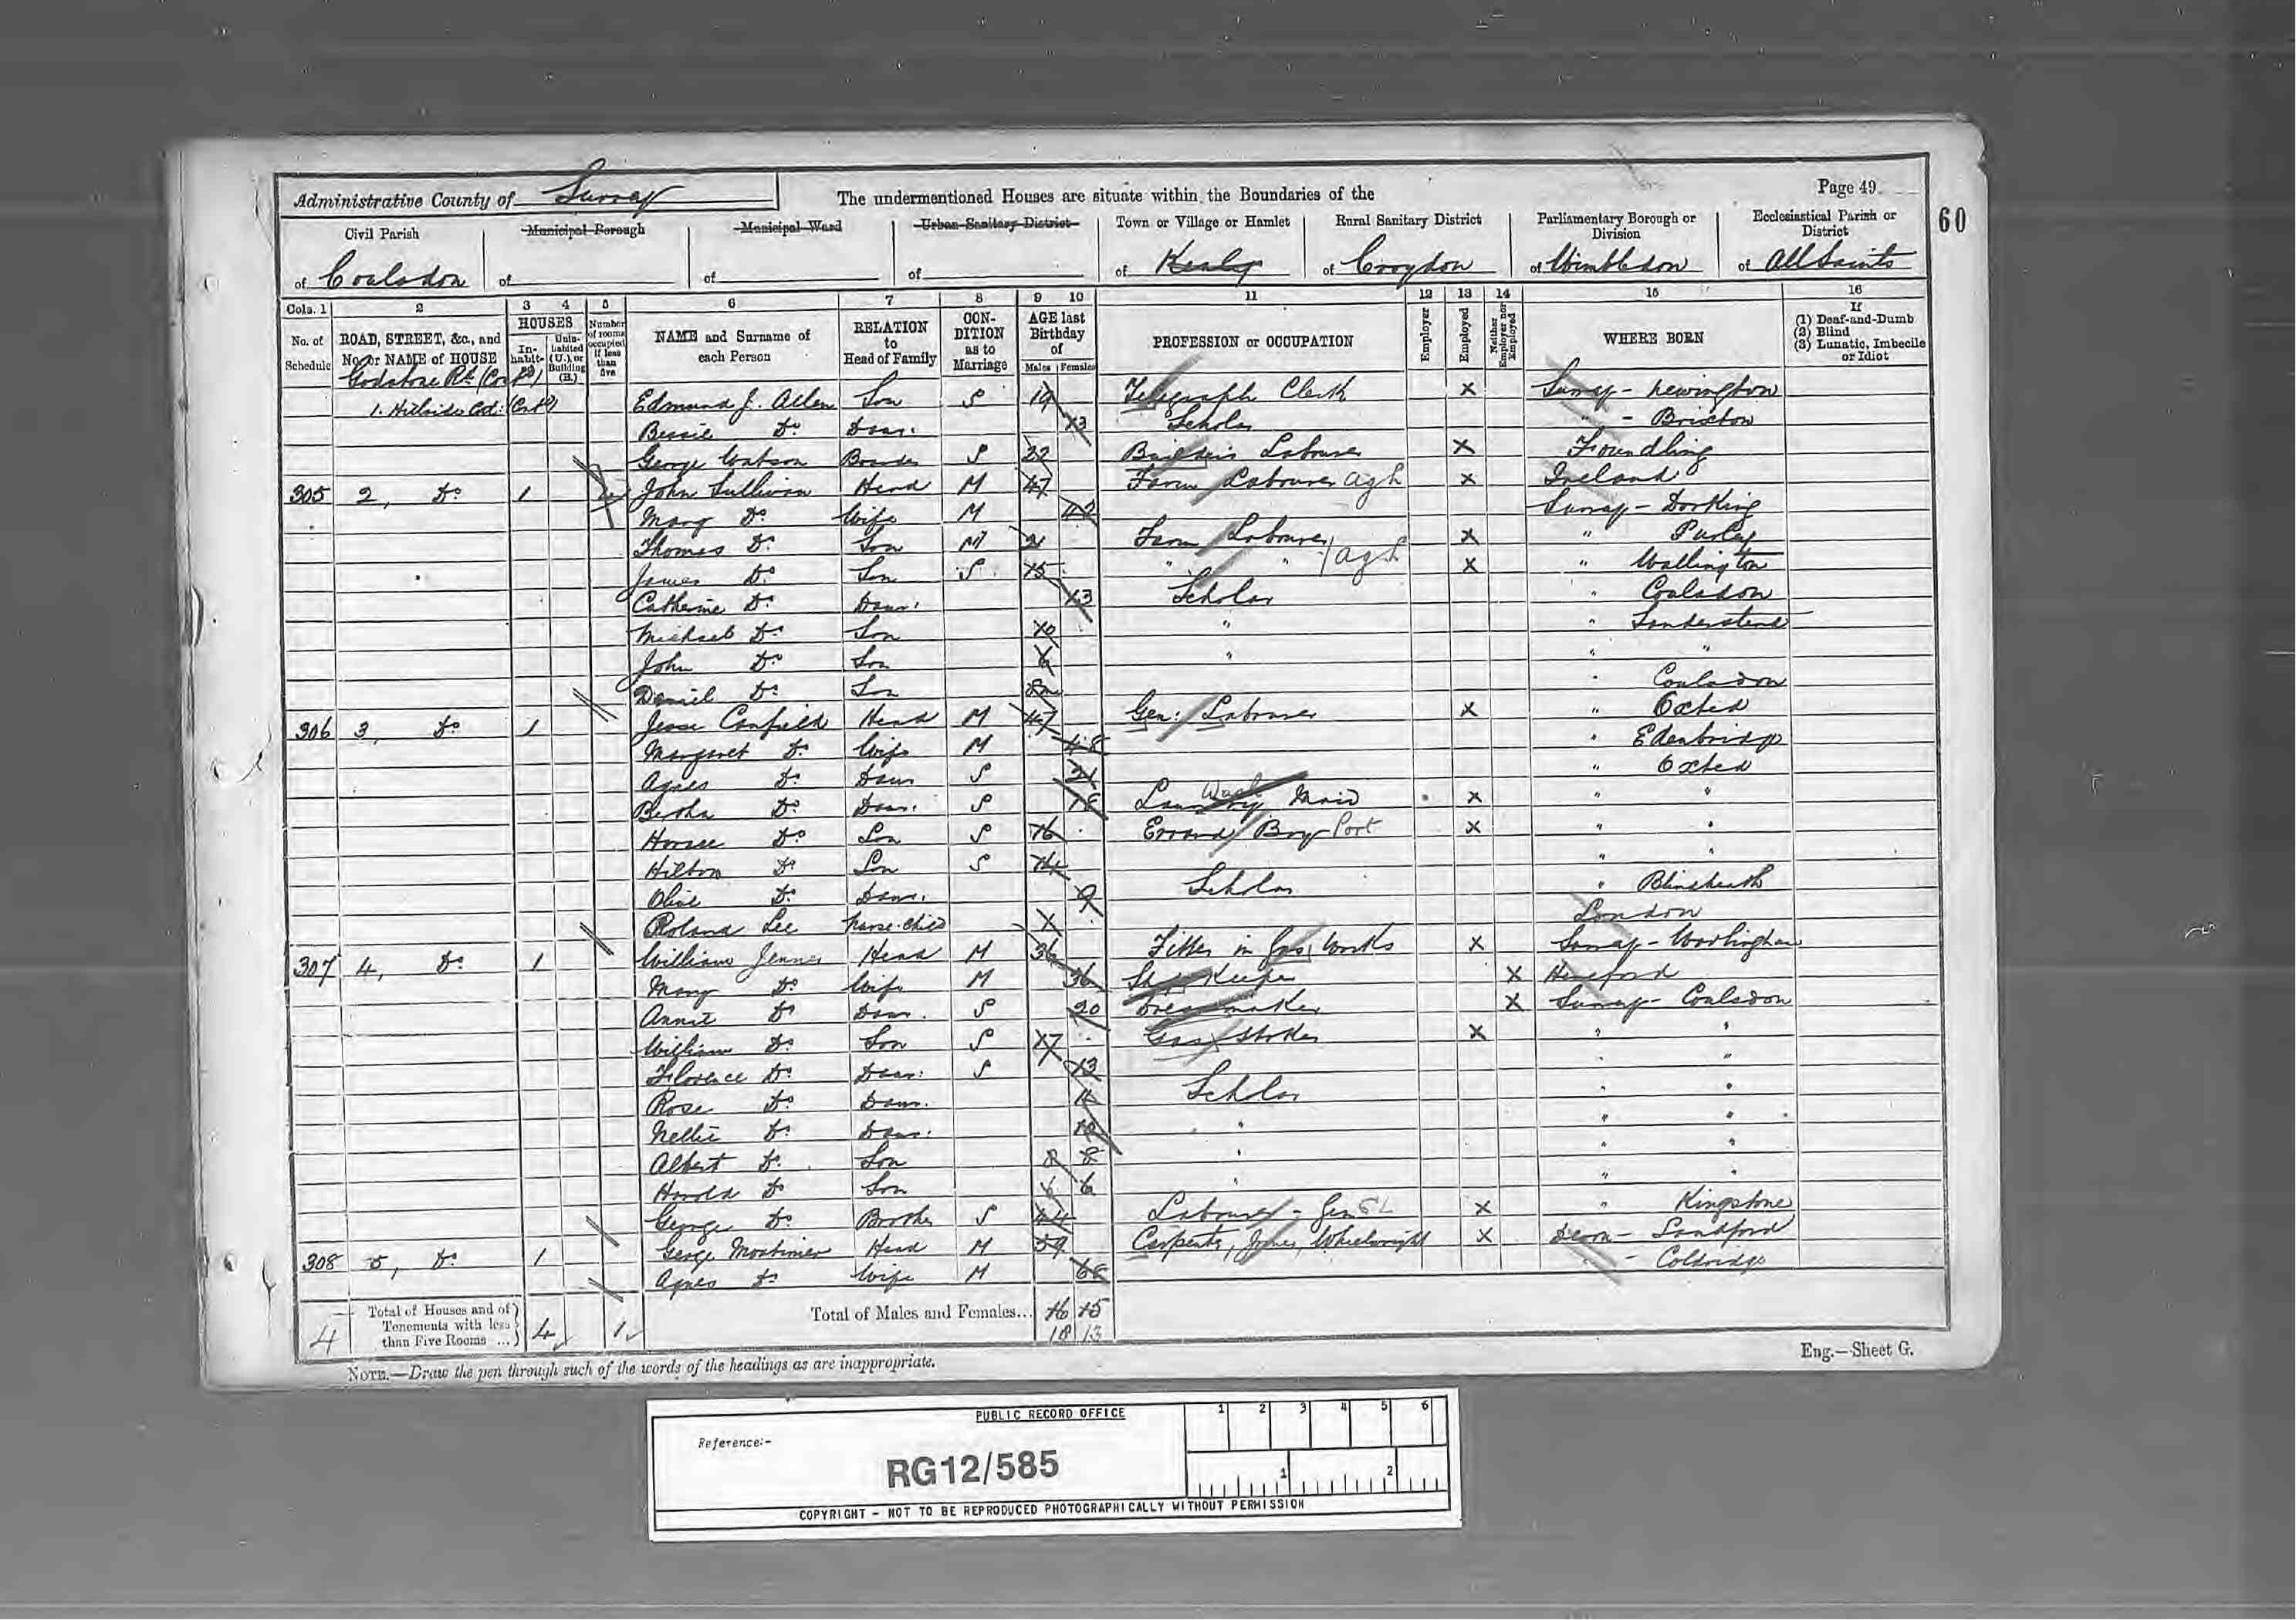 Administrative County of Surrey The undermentioned Houses are situate within the Boundaries of the Page 49
60
Civil Parish Municipal Borough Municipal Ward Urban Sanitary District Town or Village or Hamlet Rural Sanitary District Parliamentary Borough or Division Ecclesiastical Parish or District
of Coulsdon of of of of Kenley of Croydon of Wimbledon of All Saints
Cols. 1 2 3 4 5 6 7 8 9 10 11 12 13 14 15 16
No. of Schedule ROAD, STREET, &c., and No. or NAME of HOUSE HOUSES In-habit-ed Unin-habited (U.), or Building (B.) Number of rooms occupied if less than five NAME and Surname of each Person RELATION to Head of Family CON-DITION as to Marriage AGE last Birthday of Males Females PROFESSION or OCCUPATION Employer Employed Neither Employer nor Employed WHERE BORN If (1) Deaf-and-Dumb (2) Blind (3) Lunatic, Imbecile or Idiot
Godstone Rd (Contd)
1. Hillside Cot: (Contd) Edmund J. Allen Son S 19 Telegraph Clerk X Surrey - Newington
Bessie Do Daur. 13 Scholar " - Brixton
George Watson Boarder S 22 Builders Labourer X Foundling
305 2, Do 1 4 John Sullivan Head M 47 Farm Labourer Ag L X Ireland
Mary Do Wife M 42 Surrey - Dorking
Thomas Do Son M 21 Farm Labourer X " Purley
James Do Son S 15 " " Ag L X " Wallington
Catherine Do Daur. 13 Scholar " Coulsdon
Michael Do Son 10 " " Sanderstead
John Do Son 6 " " "
Daniel Do Son " Coulsdon
306 3, Do 1 Jesse Canfield Head M 47 Gen: Labourer X " Oxted
Margaret Do Wife M 48 " Edenbridge
Agnes Do Daur S 21 " Oxted
Bertha Do Daur. S 18 Laundry Wash Maid X " "
Horace Do Son S 16 Errand Boy Port X " "
Hilton Do Son S 14 " "
Olive Do Daur. 9 Scholar " Blindheath
Roland Lee Nurse-child London
307 4, Do 1 William Jenner Head M 36 Fitter in Gas Works X Surrey - Warlingham
Mary Do Wife M 36 Shop Keeper X Hereford
Annie Do Daur. S 20 Dressmaker X Surrey - Coulsdon
William Do Son S 17 Gas Stoker X " "
Florence Do Daur: S 13 " "
Rose Do Daur. 11 Scholar " "
Nellie Do Daur: 10 " " "
Albert Do Son 8 8 " " "
Harold Do Son 6 6 " " "
George Do Brother S 44 Labourer - Gen G L X " Kingstone
308 5, Do 1 George Mortimer Head M 59 Carpenter, Joiner, Wheelwright X Devon - Sandford
Agnes Do Wife M 68 " - Coldridge
4 Total of Houses and of Tenements with less than Five Rooms ... 4 1 Total of Males and Females... 16 15
18 13
NOTE.—Draw the pen through such of the words of the headings as are inappropriate.
Eng.—Sheet G.
PUBLIC RECORD OFFICE 1 2 3 4 5 6
Reference:-
RG12/585 1 2
COPYRIGHT - NOT TO BE REPRODUCED PHOTOGRAPHICALLY WITHOUT PERMISSION